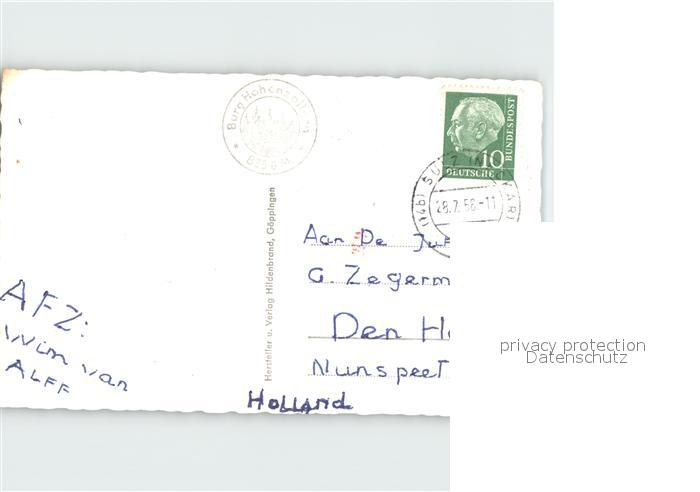 Burg Hohenzollern
855 ü. M.
10
DEUTSCHE
BUNDESPOST
(14b) SULZ
28.7.58.-11
Hersteller u. Verlag Hildenbrand, Göppingen
Aan De
G. Zegerm
Den H
Nunspeet
HOLLAND
AFZ:
Wim van
ALFF
privacy protection
Datenschutz